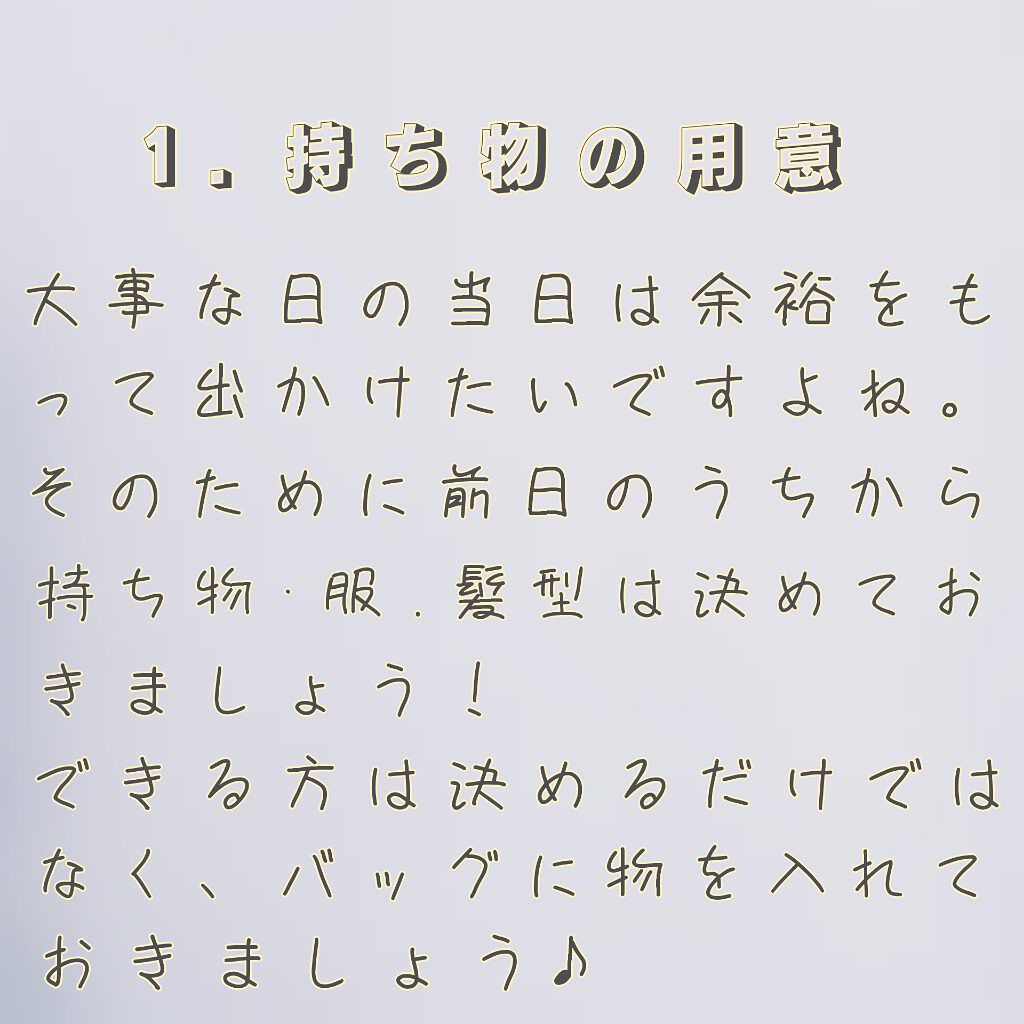 1. 持ち物の用意
大事な日の当日は余裕をも
って出かけたいですよね。
そのために前日のうちから
持ち物·服.髪型は決めてお
きましょう！
できる方は決めるだけでは
なく、バッグに物を入れて
おきましょう♪